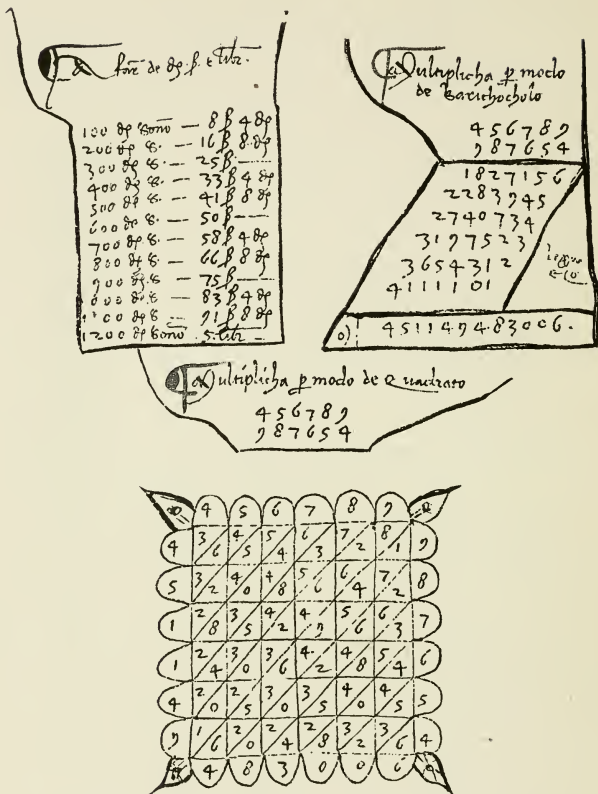 fare de dg. β. e libr.
100 dg sono — 8 β 4 dg
200 dg s. — 16 β 8 dg
300 dg s. — 25 β —
400 dg s. — 33 β 4 dg
500 dg s. — 41 β 8 dg
600 dg s. — 50 β —
700 dg s. — 58 β 4 dg
800 dg s. — 66 β 8 dg
900 dg s. — 75 β —
000 dg s. — 83 β 4 dg
1100 dg s. — 91 β 8 dg
1200 dg sono 5. libr —
Multiplicha p modo
de Barichocholo
456789
987654
1827156
2283945
2740734
3197523
3654312
4111101
451149483006.
Multiplicha p modo de Quadrato
456789
987654
4 5 6 7 8 9
4 3 6 4 5 5 4 6 3 7 2 8 1 9
5 3 2 4 0 4 8 5 6 6 4 7 2 8
1 2 8 3 5 4 2 4 9 5 6 6 3 7
1 2 4 3 0 3 6 4 2 4 8 5 4 6
4 2 0 2 5 3 0 3 5 4 0 4 5 5
9 1 6 2 0 2 4 2 8 3 2 3 6 4
4 8 3 0 0 6